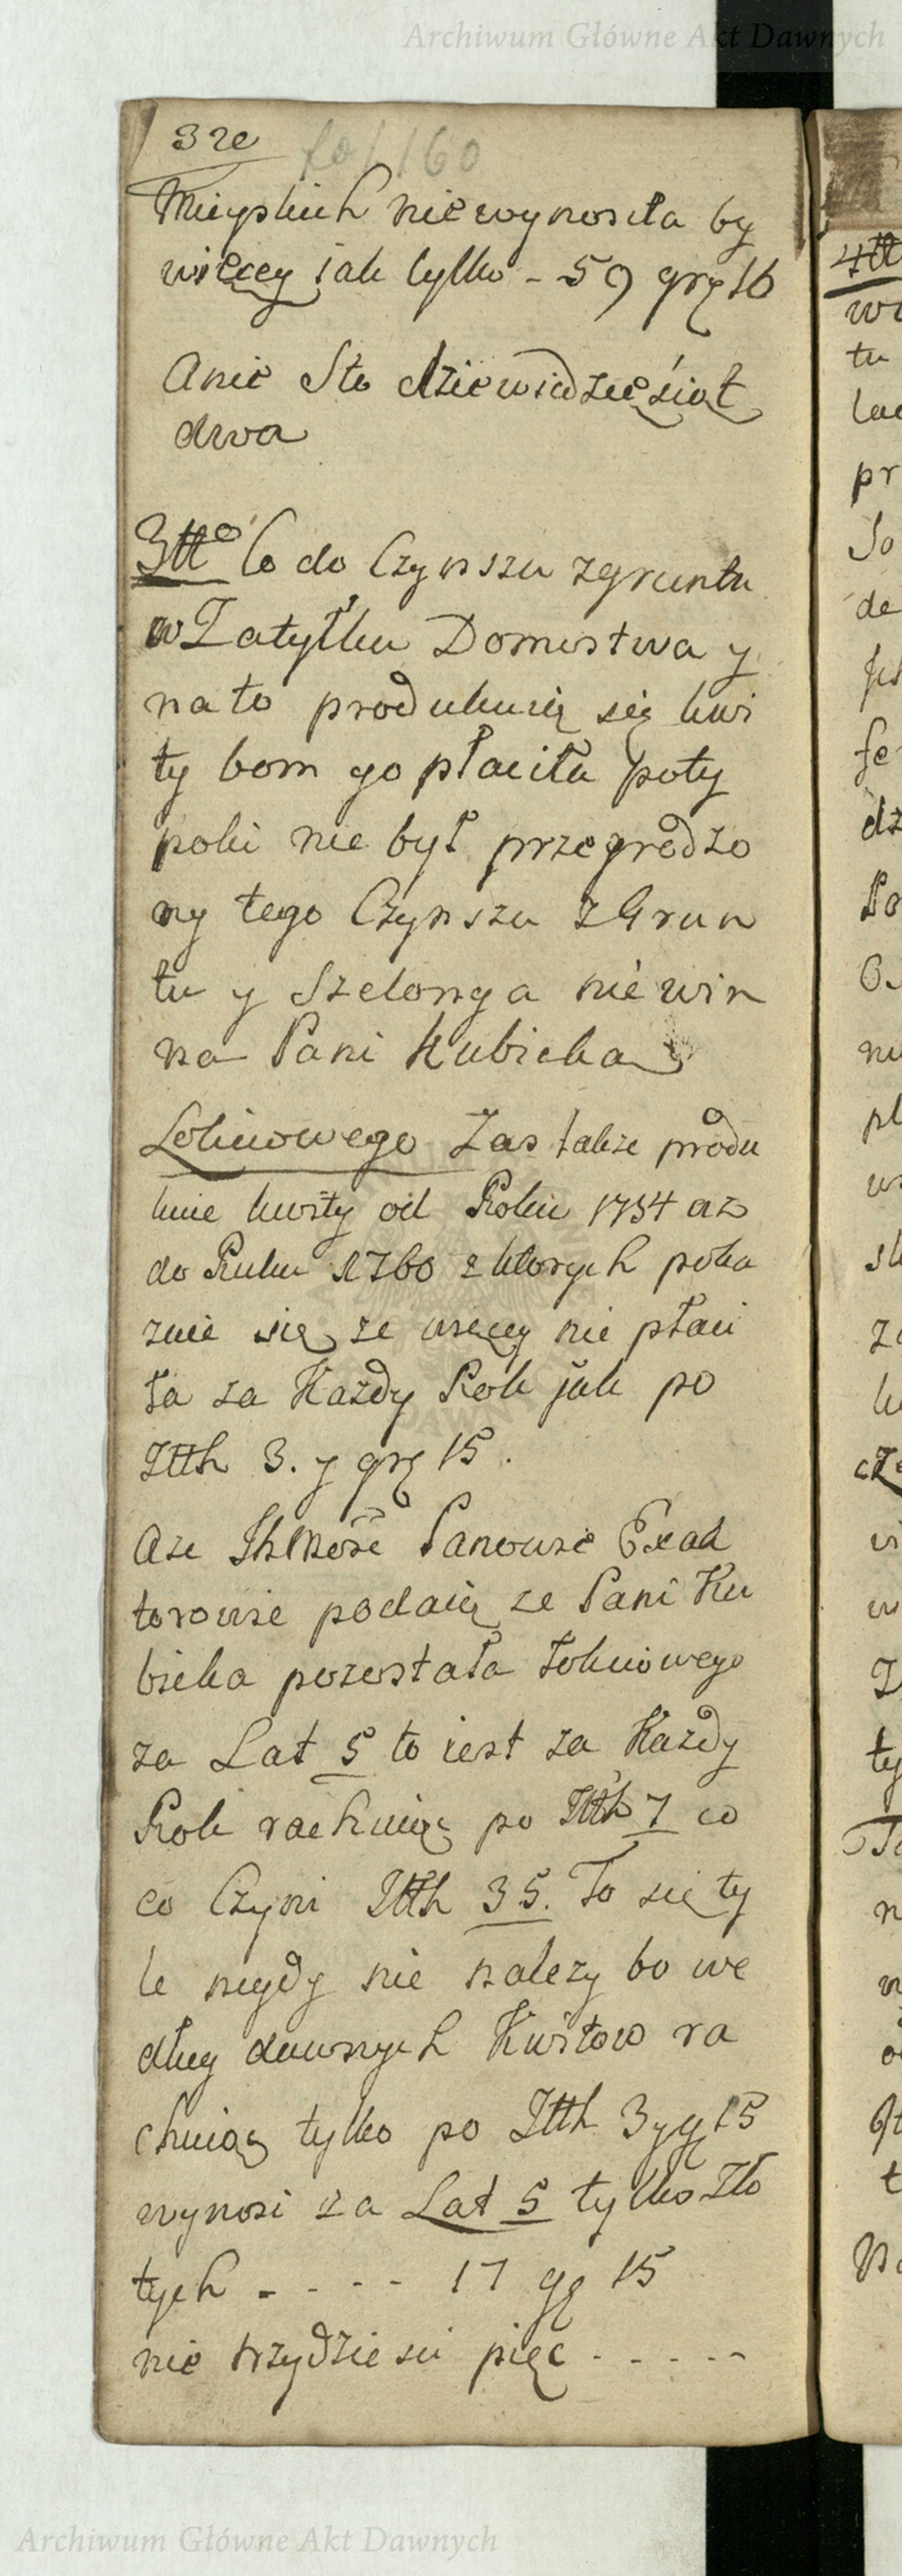 Archiwum Główne Akt Dawnych
3 re
fol 160
Mieyskich nie wynosiła by
więcey iak tylko - 59 grę 16
Anie Sto dziewiedzesiąt
dwa
3tto Co do Czynszu z gruntu
w Zatyłku Domostwa y
na to produkuią się kwi
ty bom go płaciła poty
poki nie był przegrodzo
ny tego Czynszu z Grun
tu y Szelonga nie win
na Pani Kubicka
Lokciowego Zas takze produ
kuie kwity od Roku 1754 az
do Ruku 1760 z ktorych poka
zuie się ze więcey nie płaci
ła za Kazdy Rok jak po
Ztth 3. y grę 15.
Aze Panowie Exak
torowie podaią ze Pani Ku
bicka pozostała łokciowego
za Lat 5 to iest za Kazdy
Rok rachuiąc po Ztth 7 co
co Czyni Ztth 35. To się ty
le nigdy nie nalezy bo we
dług dawnych Kwitow ra
chuiąc tylko po Ztth 3 y gę 15
wynosi za Lat 5 tylko Zło
tych - - - - 17 gę 15
nie trzydziesci pięc - - - - -
4tt
w
tu
lac
pr
So
de
fe
dz
Po
O
nu
pl
w
sk
za
k
cze
wi
w
Z
ty
To
n
w
t
Archiwum Główne Akt Dawnych